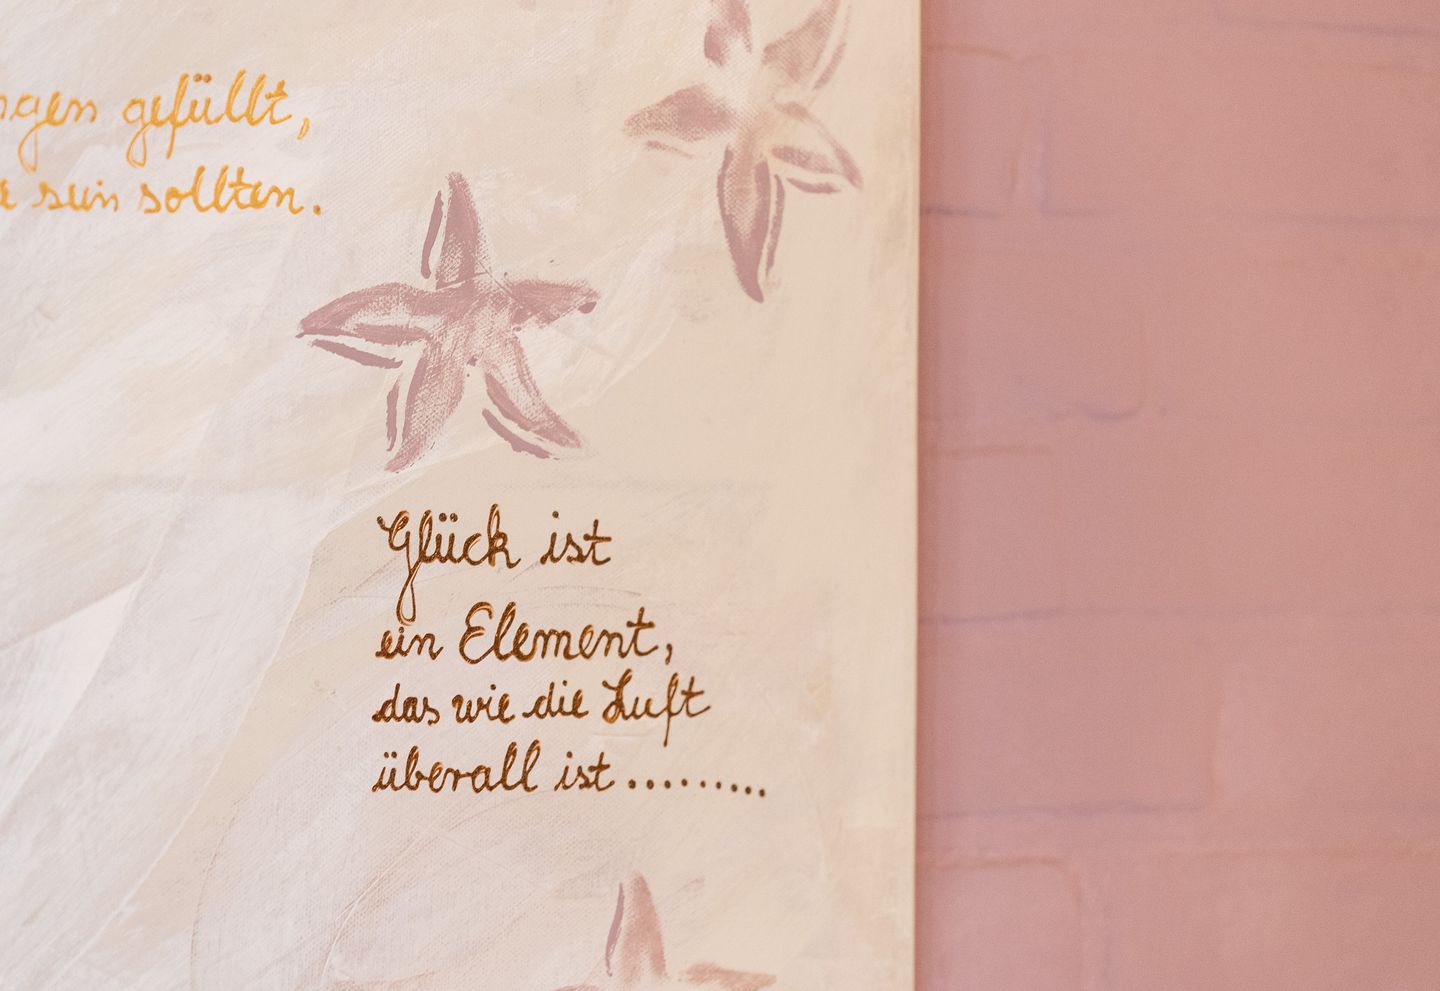 gefüllt,
sein sollten.
Glück ist
ein Element,
das wie die Luft
überall ist .........